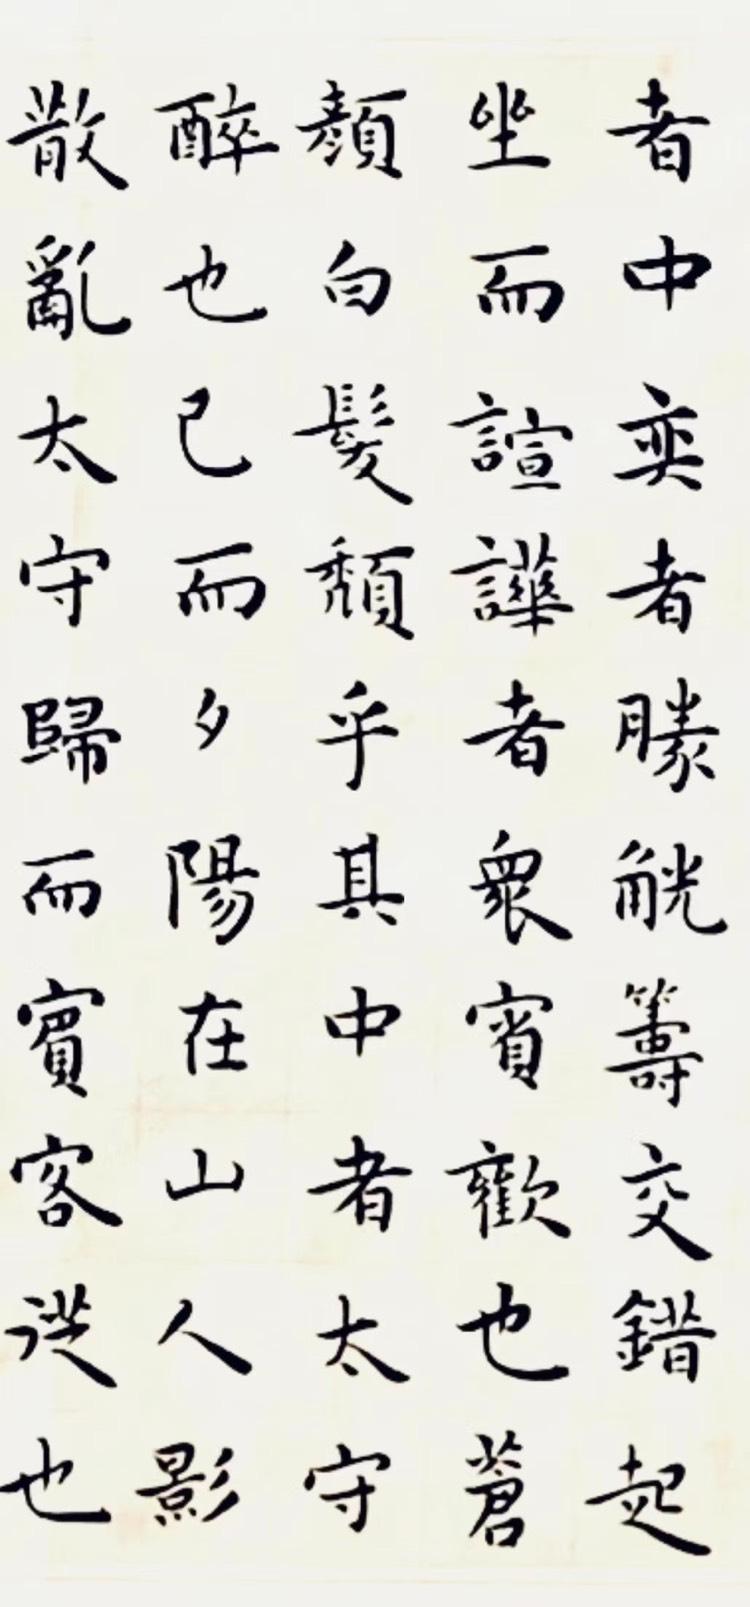 者中奕者勝觥籌交錯起
坐而諠譁者衆賓歡也蒼
顏白髮頹乎其中者太守
醉也已而夕陽在山人影
散亂太守歸而賓客從也